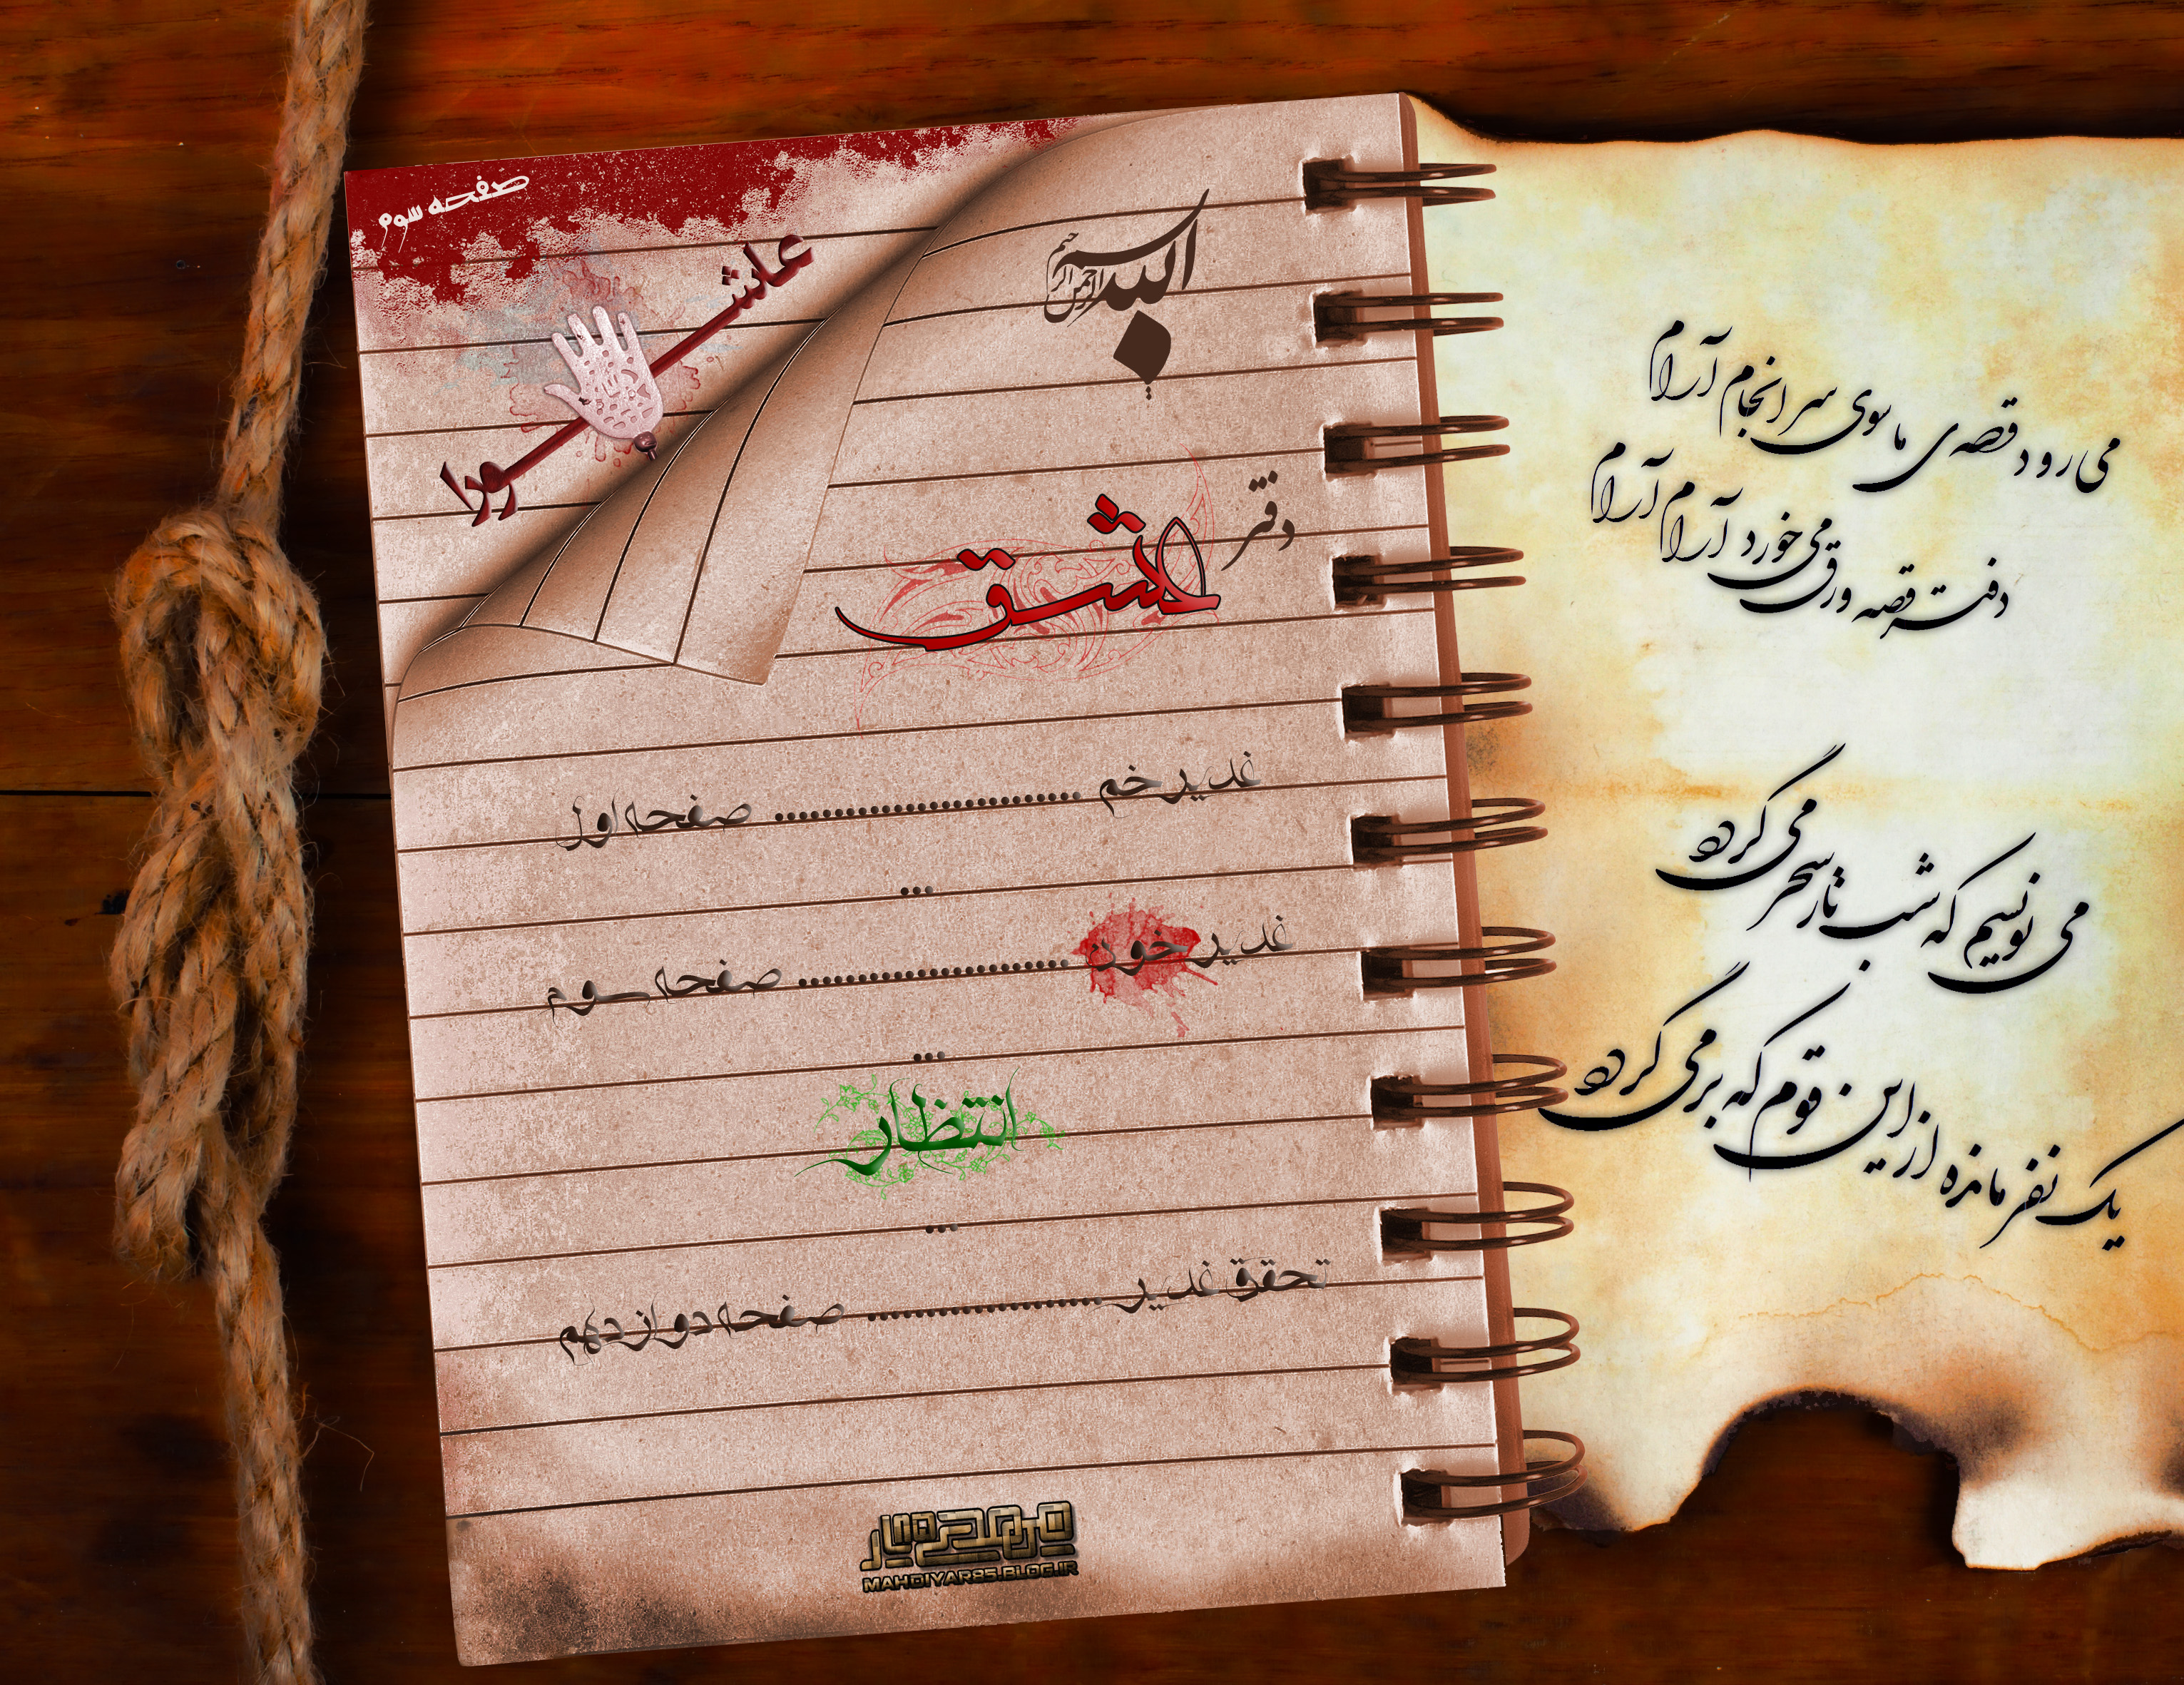 می رود قصه‌ی ما سوی سرانجام آرام
دفتر قصه ورق می خورد آرام آرام
می نویسیم که شب تار سحر می گردد
یک نفر مانده از این قوم که بر می گردد
بسم الله الرحمن الرحیم
صفحه سوم
عاشورا
دفتر عشق
غدیر خم .......................... صفحه اول
...
غدیر خون ....................... صفحه سوم
...
انتظار
...
تحقق غدیر .................... صفحه دوازدهم
MAHDIYAR85.BLOG.IR